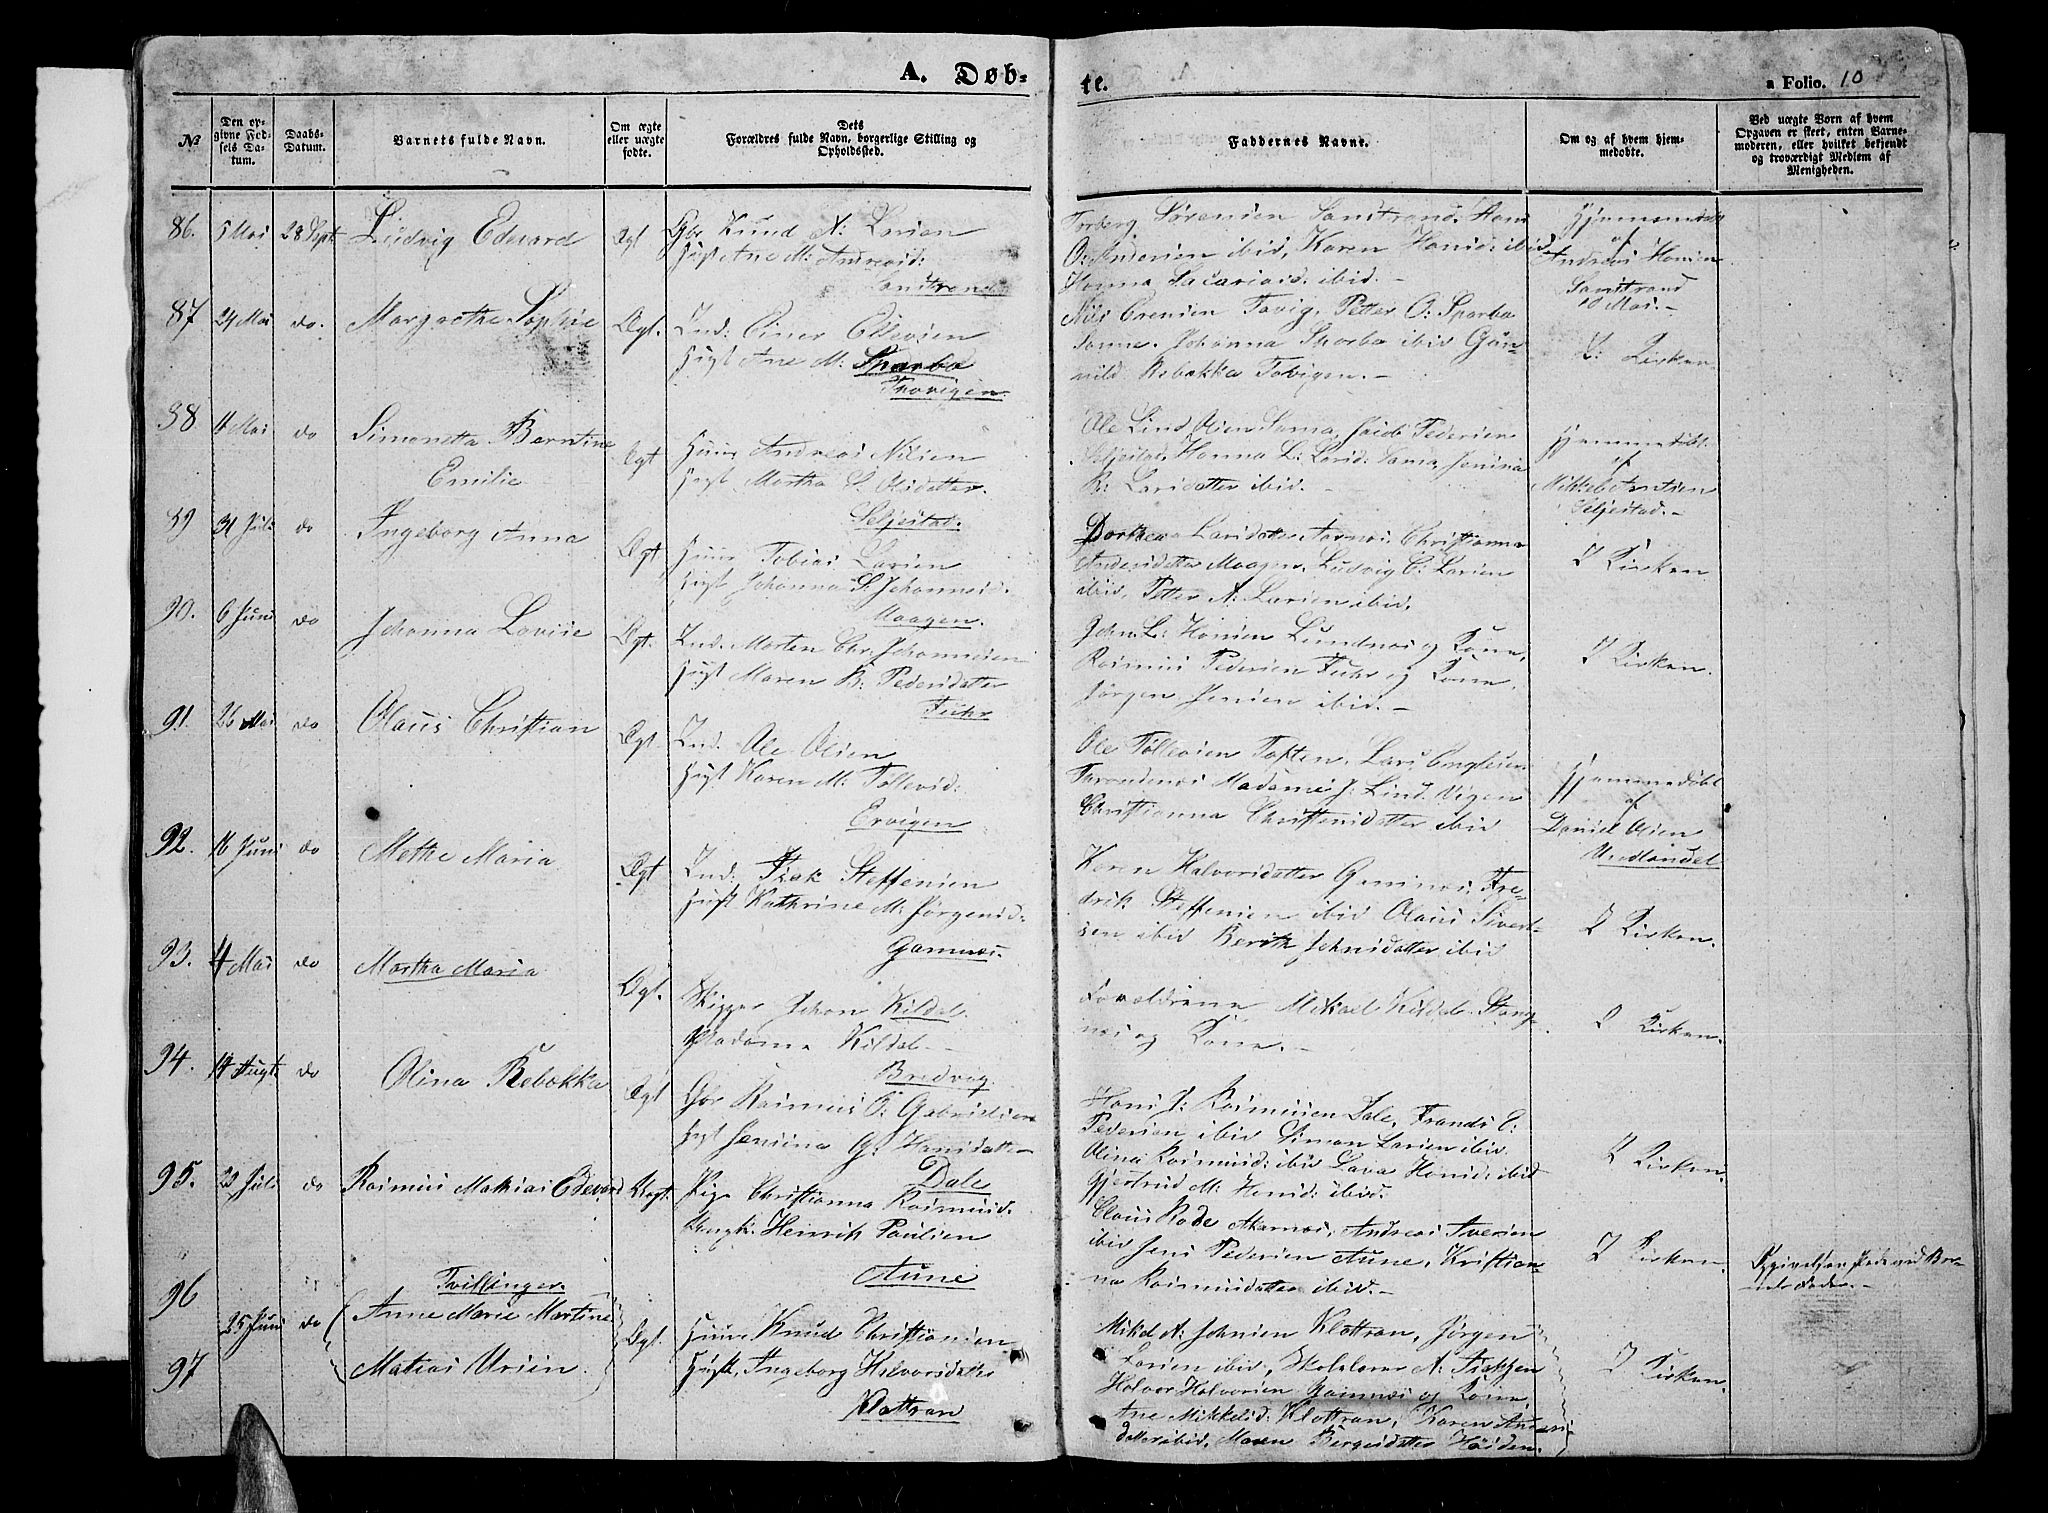 A. Døb-
te.
a Folio. 10
No
Den op-
givne Fød-
sels Da-
tum.
Daabs-
Datum.
Barnets fulde Navn.
Om ægte
eller uægte
fødte.
Dets
Forældres fulde Navn, borgerlige Stilling og
Opholdssted.
Faddernes Navne.
Om og af hvem hjem-
medøbte.
Ved uægte Born af hvem
Opgaven er skeet, enten Barne-
moderen, eller hvilket bekjendt
og troværdigt Medlem af
Menigheden.
86. 5 Mai 28 Sept Ludvig Edvard Ægt Gbr Knud A: Larsen
Hust Ane M: Andreasd:
Sandstrand
Torberg Sørensen Sandstrand, Hans
O: Andersen ibid, Karen Hansd: ibid
Hanna Sacariasd. ibid. -
Hjemmedøbt
af
Andreas Hansen
Sandstrand
10 Mai. -
87 24 Mai do. Margrethe Sophie Ægt. Ind: Einer Ellevsen
Hust Ane M: Sparbo
Trovigen.
Nils Erensen Tovig, Petter O: Sparbo
Sama. Johanna Sparbo ibid Gun-
nild Rebekka Tovigen. -
I Kirken
88 11 Mai do Simonetta Berntine
Emilie
Ægt Huus Andreas Nilsen
Hust Martha S Olsdatter.
Seljestad.
Ole Lind Olsen Sama, Jacob Pedersen
Seljestad, Hanna L: Larsd: Sama, Jensina
B: Larsdatter ibid. -
Hjemmedøbt
af
Mikkel Arntsen
Seljestad. -
89 31 Juli do Ingeborg Anna Ægt Huus Tobias Larsen
Hust Johanna S: Johannesd.
Maagen.
Dorthea Larsdatter Aarnæs, Christianna
Andersdatter Maagen, Ludvig E: Larsen
ibid, Petter A: Larsen ibid.
I Kirken
90. 6 Juni do Johanna Lovise Ægt. Ind. Morten Chr. Johannesen
Hust Maren B: Pedersdatter
Fuhr
John L: Hansen Lundnæs og Kone,
Rasmus Pedersen Fuhr og Kone.
Jørgen Jensen ibid. -
I Kirken.
91. 26 Mai do Olaus Christian Ægt. Ind. Ole Olsen
Hust Karen M: Tollevsd:
Ervigen
Ole Tollevsen Toften, Lars Engelsen
Madame J: Lind Vigen
Christianna Christensdatter ibid
Hjemmedøbt
af
Daniel Olsen
Undlandet
92. 16 Juni do Methe Maria Ægt Ind: Isak Steffensen
Hust Kathrine M: Jørgensd:
Gamnæs.
Karen Halvorsdatter Gamnæs, Fre-
drik Steffensen ibid Olaus Sivert-
sen ibid Berith Johnsdatter ibid
I Kirken.
93. 4 Mai do Martha Maria Ægt. Skipper Johan Kildal.
Madame Kildal -
Bredvog
Forældrene Mikael Kildal Stang-
næs og Kone. -
I Kirken.
94. 14 Augt do Olina Rebekka Ægt Gbr Rasmus O: Gabrielsen
Hust Jensina G: Hansdatter
Dale
Hans J: Rasmussen Dale, Frands E:
Pedersen ibid Simon Larsen ibid.
Olina Rasmusd: ibid Lava Hansd: ibid
Gjertrud M: Hansd: ibid.
I Kirken.
95. 23 Juli do Rasmus Mathias Edevard Uægt. Pige Christianna Rasmusd.
Ungk: Henrik Paulsen
Aune
Claus Rode Akarnæs, Andreas Iversen
ibid Jens Pedersen Aune, Kristian-
na Rasmusdatter ibid. -
I Kirken.
96 25 Juni do Tvillinger.
Anne Marie Martine
97 Matias Ursin.
Ægt. Huus Knud Christiansen
Hust. Ingeborg Halvorsdatter
Klottran
Mikel A: Johnsen Klottran, Jørgen
Larsen ibid, Skolelærer A: Isaksen
Halvor Halvorsen Gamnæs og Kone,
Ane Mikkelsd: Klottran, Karen Anders-
datter ibid, Maren Børgesdatter Høiden.
I Kirken.